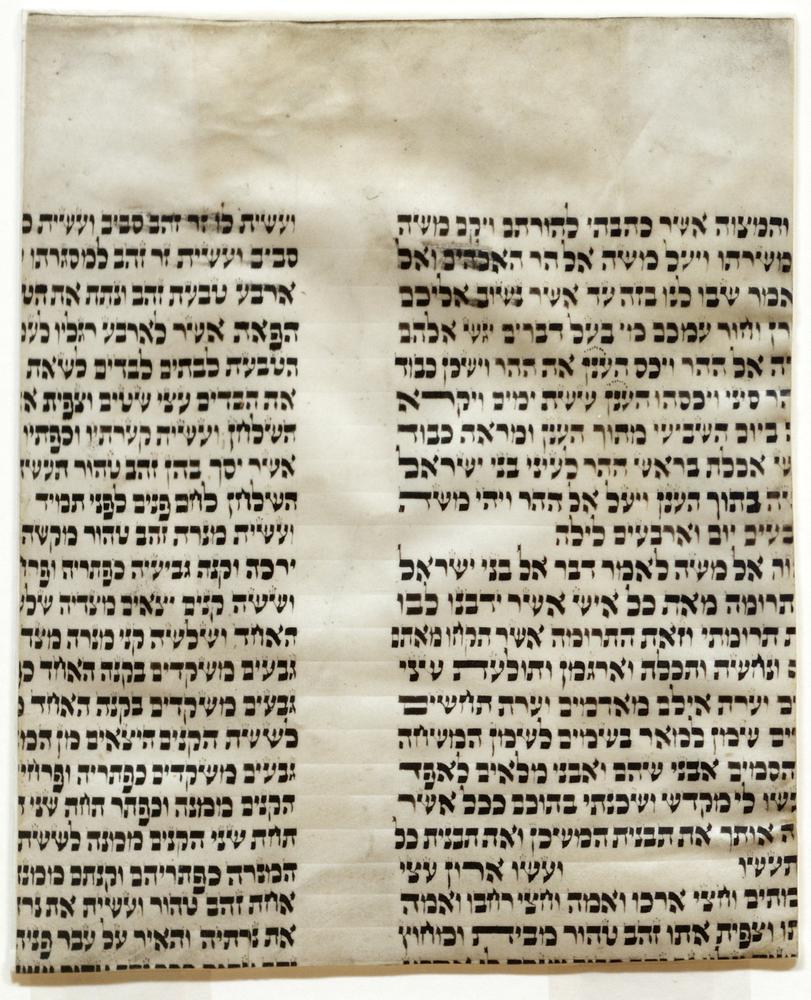 והמצוה אשר כתבתי להורתם ויקם משה
משרתו ויעל משה אל הר האלהים ואל
אמר שבו לנו בזה עד אשר נשוב אליכם
רן וחור עמכם מי בעל דברים יגש אלהם
ה אל ההר ויכס הענן את ההר וישכן כבוד
הר סיני ויכסהו הענן ששת ימים ויקרא
ביום השביעי מתוך הענן ומראה כבוד
ש אכלת בראש ההר לעיני בני ישראל
ה בתוך הענן ויעל אל ההר ויהי משה
בעים יום וארבעים לילה
וה אל משה לאמר דבר אל בני ישראל
תרומה מאת כל איש אשר ידבנו לבו
ת תרומתי וזאת התרומה אשר תקחו מאתם
ונחשת ותכלת וארגמן ותולעת שני
ם וערת אילם מאדמים וערת תחשים
ים שמן למאר בשמים לשמן המשחה
הסמים אבני שהם ואבני מלאים לאפד
עשו לי מקדש ושכנתי בתוכם ככל אשר
ה אותך את תבנית המשכן ואת תבנית כל
תעשו ועשו ארון עצי
מתים וחצי ארכו ואמה וחצי רחבו ואמה
תו וצפית אתו זהב טהור מבית ומחוץ
ועשית לו זר זהב סביב ועשית
סביב ועשית זר זהב למסגרתו
ארבע טבעת זהב ונתת את הט
הפאת אשר לארבע רגליו לע
הטבעת לבתים לבדים לשאת
את הבדים עצי שטים וצפית א
השלחן ועשית קערתיו וכפתיו
אשר יסך בהן זהב טהור תעש
השלחן לחם פנים לפני תמיד
ועשית מנרת זהב טהור מקשה
ירכה וקנה גביעיה כפתריה ופרח
וששה קנים יצאים מצדיה של
האחד ושלשה קני מנרה מצד
גבעים משקדים בקנה האחד כ
גבעים משקדים בקנה האחד כ
לששת הקנים היצאים מן המ
גבעים משקדים כפתריה ופרחי
הקנים ממנה וכפתר תחת שני
תחת שני הקנים ממנה לששת
המנרה כפתריהם וקנתם ממנ
אחת זהב טהור ועשית את נרת
את נרתיה והאיר על עבר פניה